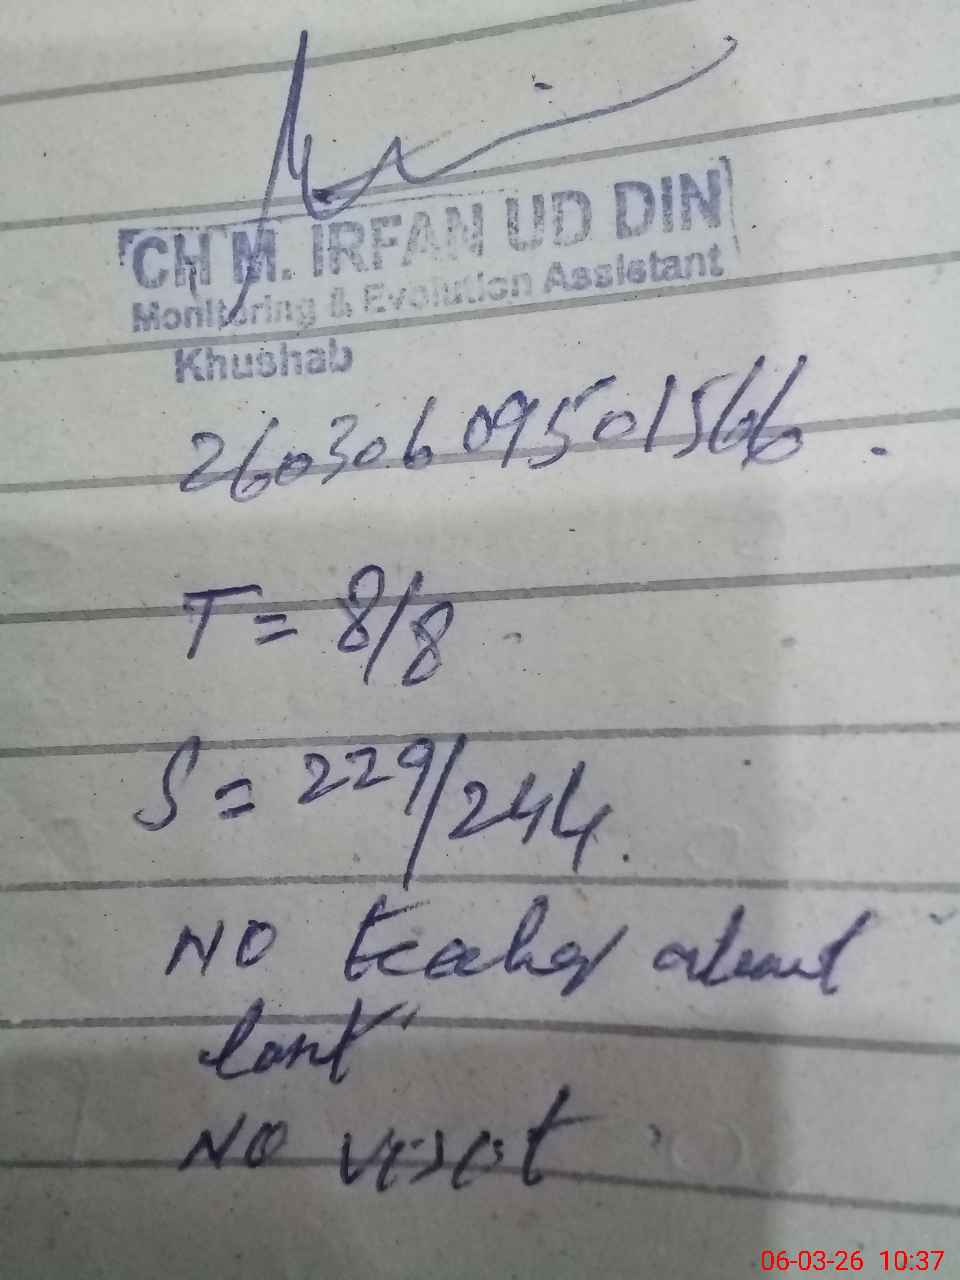 CH M. IRFAN UD DIN
Monitoring & Evolution Assistant
Khushab
26030609501566.
T = 8/8
S = 229/244.
NO teacher absent
last
NO visit
06-03-26 10:37